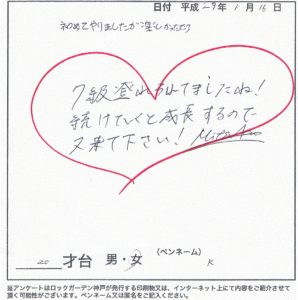 日付 平成29年1月16日
初めてやりましたが楽しかったです
7級登れちゃってましたね!
続けていくと成長するので
又来て下さい!
20 才台 男・女 (ペンネーム) K
当アンケートはロックガーデン神戸が発行する印刷物又は、インターネット上にて内容をご紹介させて
頂く可能性がございます。ペンネーム又は匿名をご記入ください。